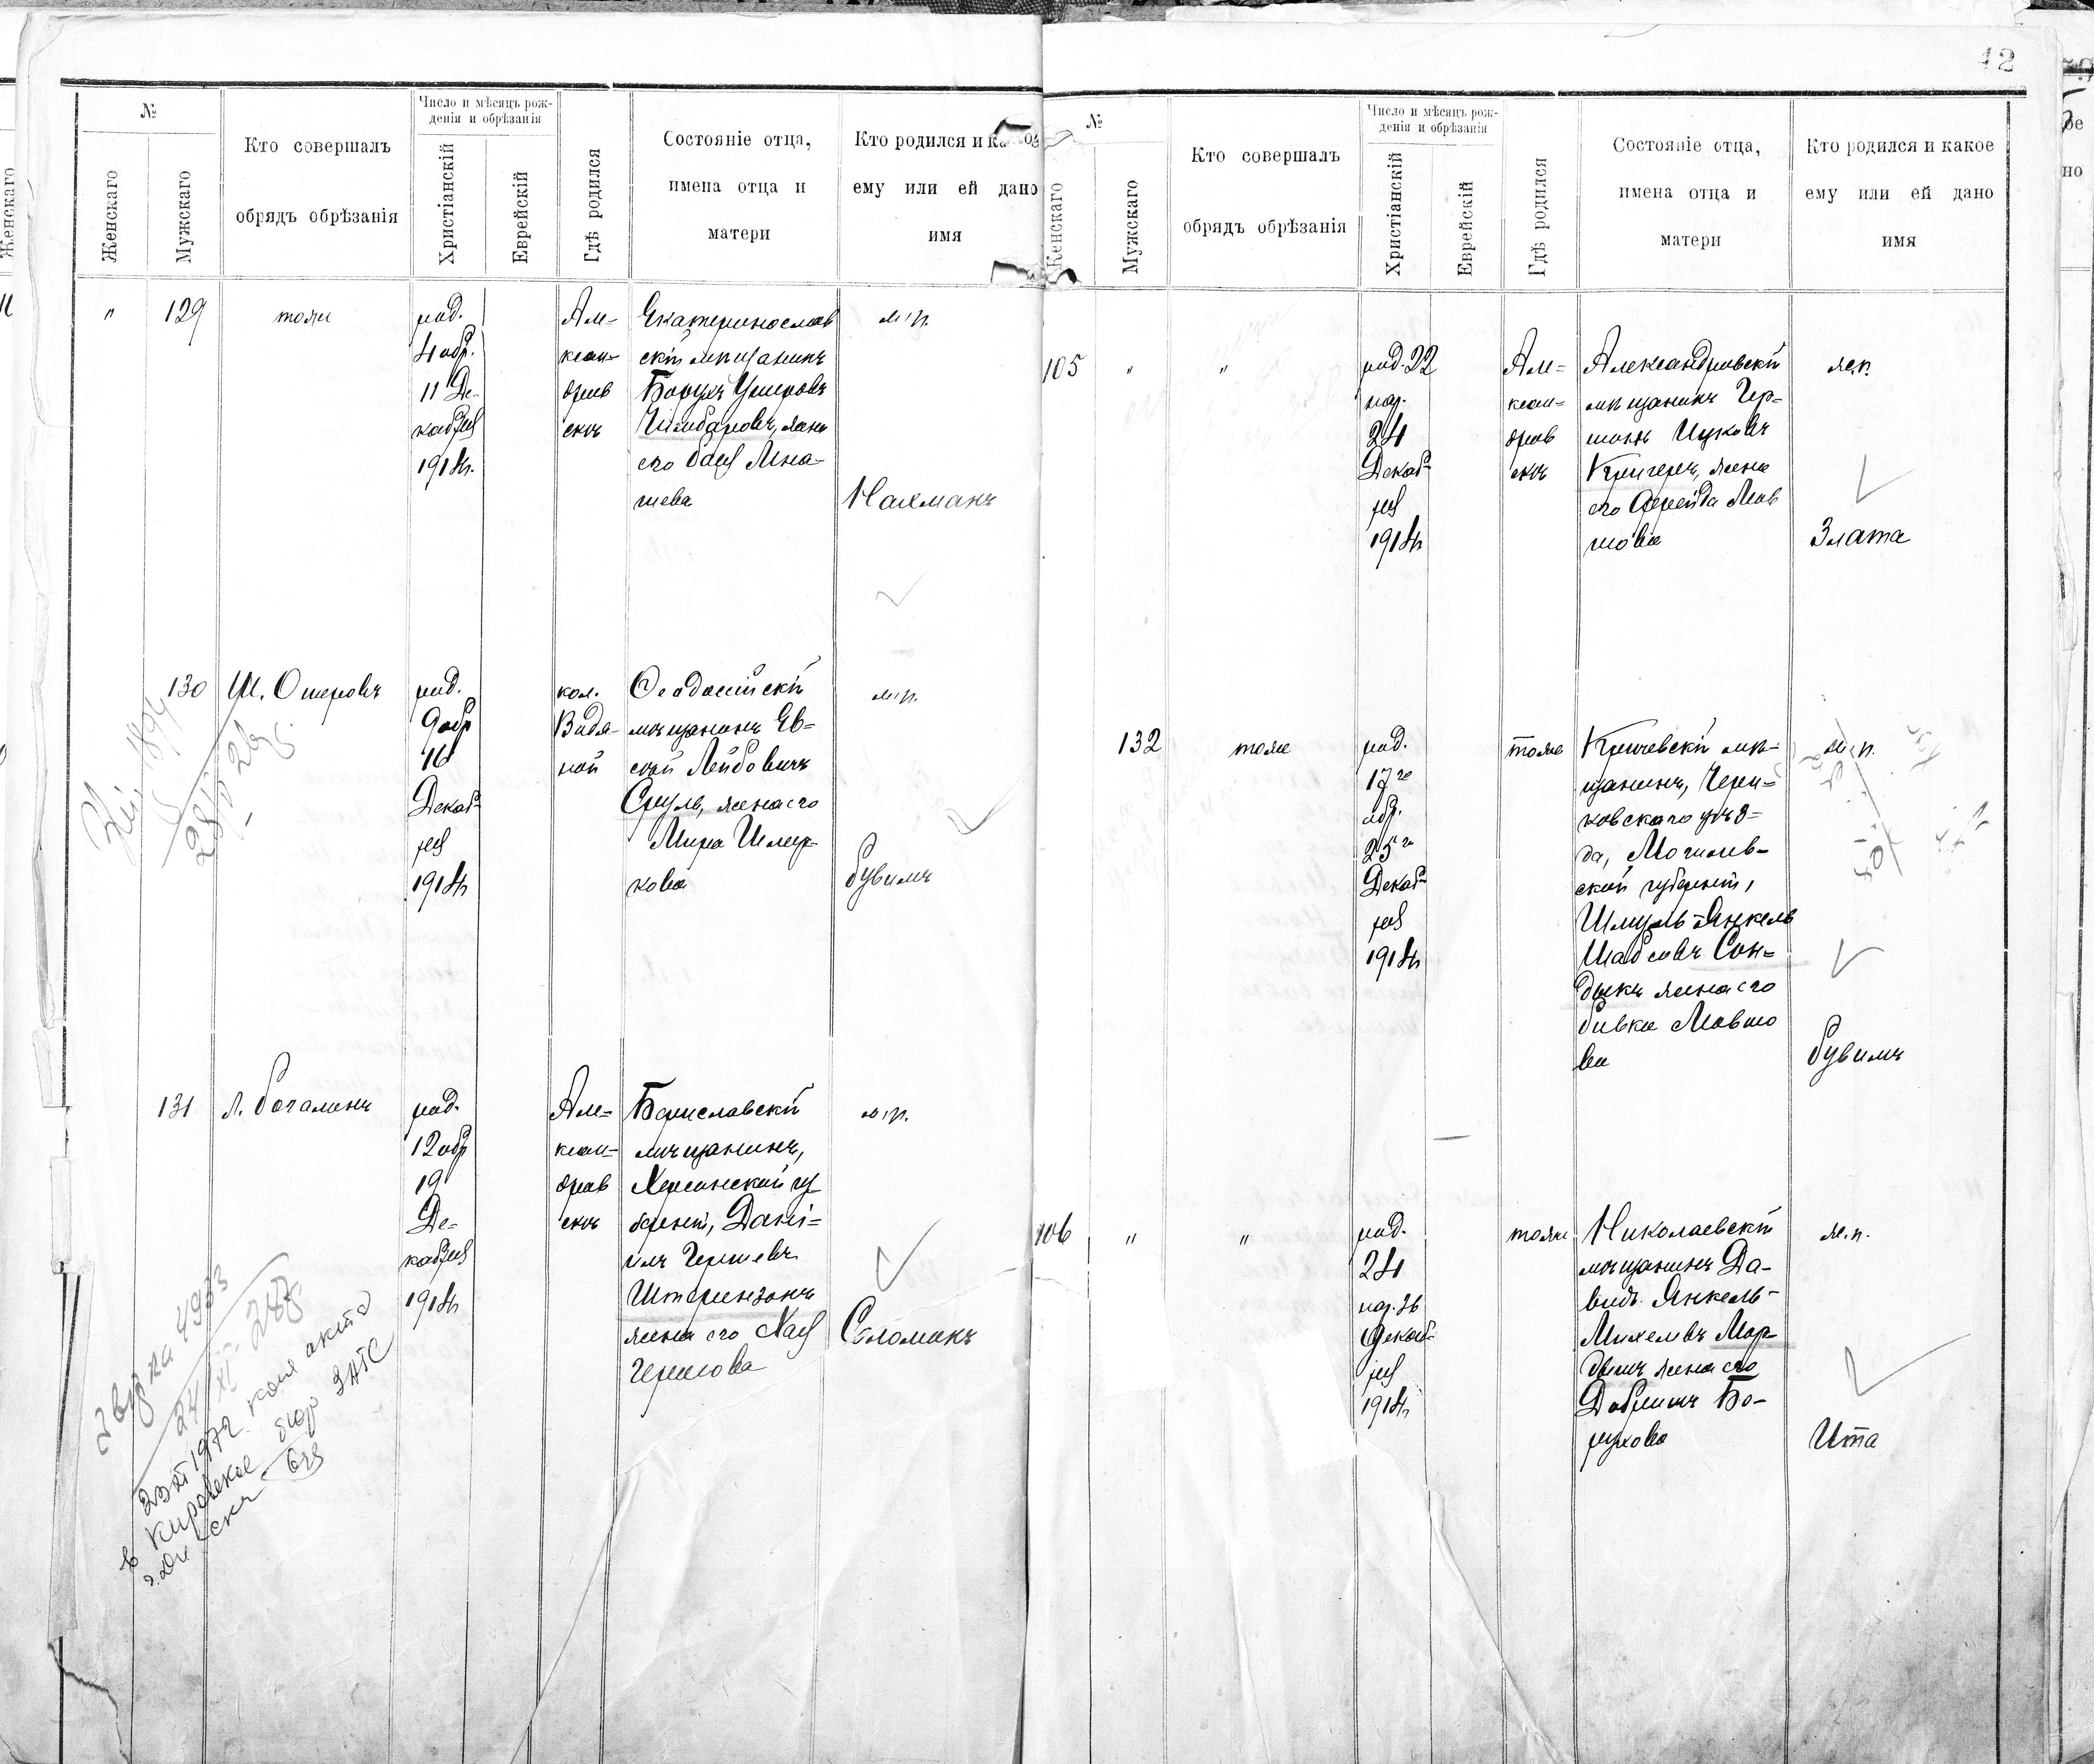 №
Женскаго
Мужскаго
Кто совершалъ
обрядъ обрѣзанія
Число и мѣсяцъ рож-
денія и обрѣзанія
Христіанскій
Еврейскій
Гдѣ родился
Состояніе отца,
имена отца и
матери
Кто родился и
ему или ей дано
имя
" 129 тоже
род.
4 обр.
11 Де-
кабря
1914г.
Але-
ксан-
дров
скъ
Екатеринослав
скій мѣщанинъ
Борухъ Ушеровъ
жена
его Бася Мна-
шева
м. п.
Нахманъ
130 Ш. Ошеровъ
род.
9 обр
16
Декаб-
ря
1914г
кол.
Видя-
ной
Ѳеодосійскій
мѣщанинъ Ев-
сей Лейбовичъ
Сруль, жена его
Мира Шмер-
кова
м. п.
Рувимъ
131 Л. Рогалинъ
род.
12 обр
19
Де-
кабря
1914г
Але-
ксан-
дров
скъ
Бериславскій
мѣщанинъ,
Херсонской гу
берніи, Даніи-
илъ Гершевъ
Штеринзонъ
жена его Хая
Гершова
м. п.
Соломонъ
4933
24/XI
1972 копия акта
в Кировское бюро ЗАГС
12
№
Женскаго
Мужскаго
Кто совершалъ
обрядъ обрѣзанія
Число и мѣсяцъ рож-
денія и обрѣзанія
Христіанскій
Еврейскій
Гдѣ родился
Состояніе отца,
имена отца и
матери
Кто родился и какое
ему или ей дано
имя
105 " "
род. 22
нар.
24
Декаб-
ря
1914г
Але-
ксан-
дров
скъ
Александровскій
мѣщанинъ Гер-
шонъ Ицковъ
Кригеръ, жена
его Фрейда Мов
шова
ж. п.
Злата
132 тоже
род.
17го
обр.
25го
Декаб-
ря
1914г
тоже
Кричевскій мѣ-
щанинъ, Чери-
ковскаго уѣз-
да, Могилев-
ской губерніи,
Шмуль-Янкель
Шабсовъ Сон-
дыкъ жена его
Ривка Мовшо
ва
м. п.
Рувимъ
106 " "
род.
24
нар. 26
Декаб-
ря
1914г
тоже
Николаевскій
мѣщанинъ Да-
видъ Янкель-
Михелевъ Мор-
дышъ жена его
Добришъ Бо-
рухова
ж. п.
Ита